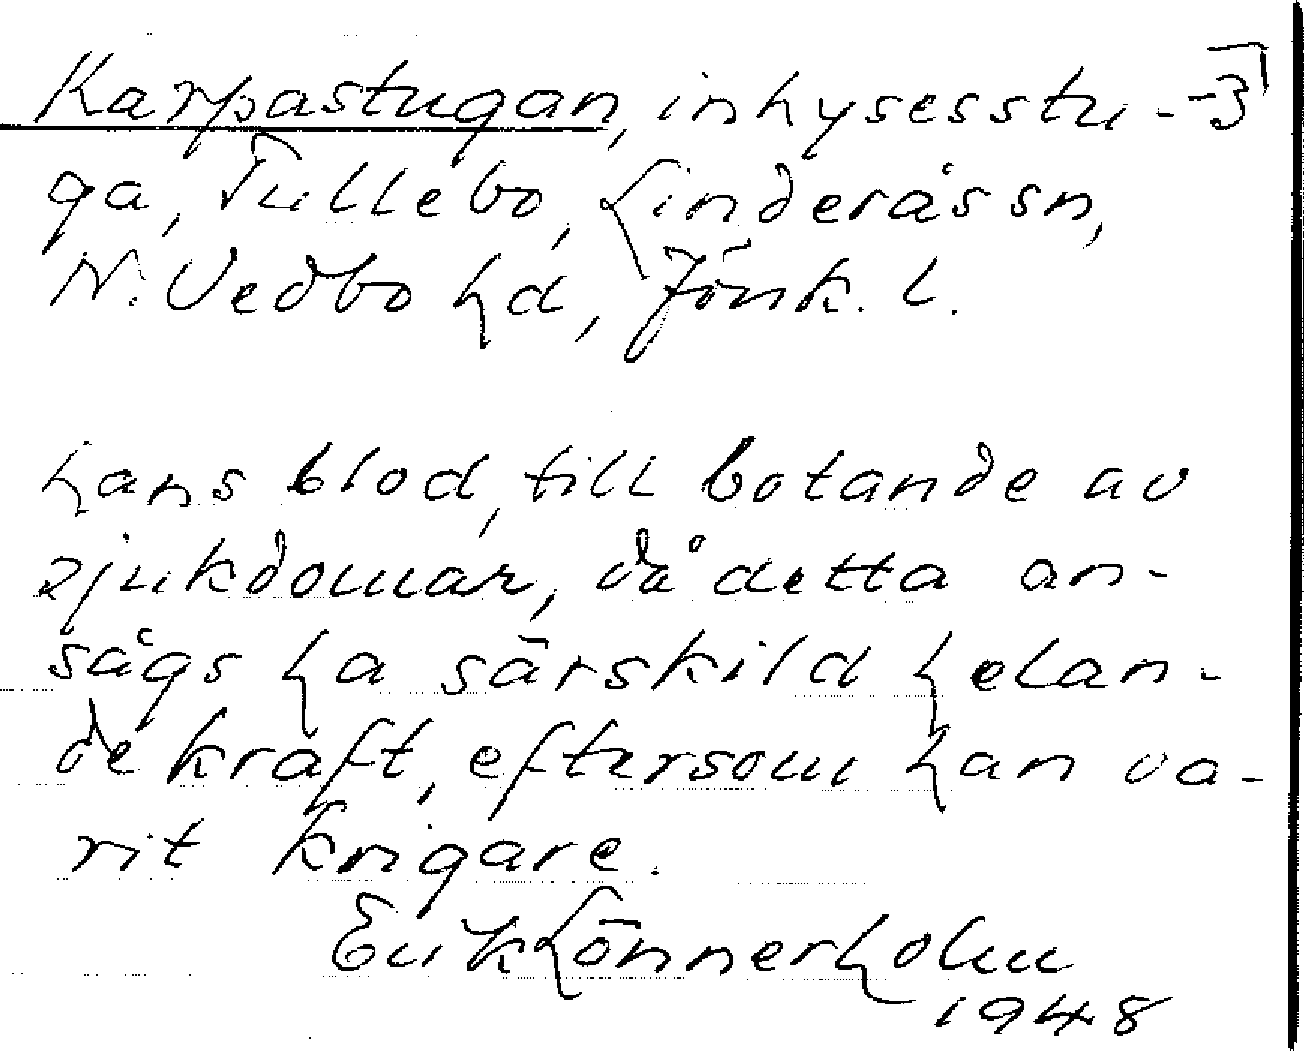 Karpastugan, inhysesstu- -3
ga, Tullebo, Linderås sn,
N. Vedbo hd, Jönk. l.
hans blod, till botande av
sjukdomar, då detta an-
sågs ha särskild helan-
de kraft, eftersom han va-
rit krigare.
Erik Lönnerholm
1948